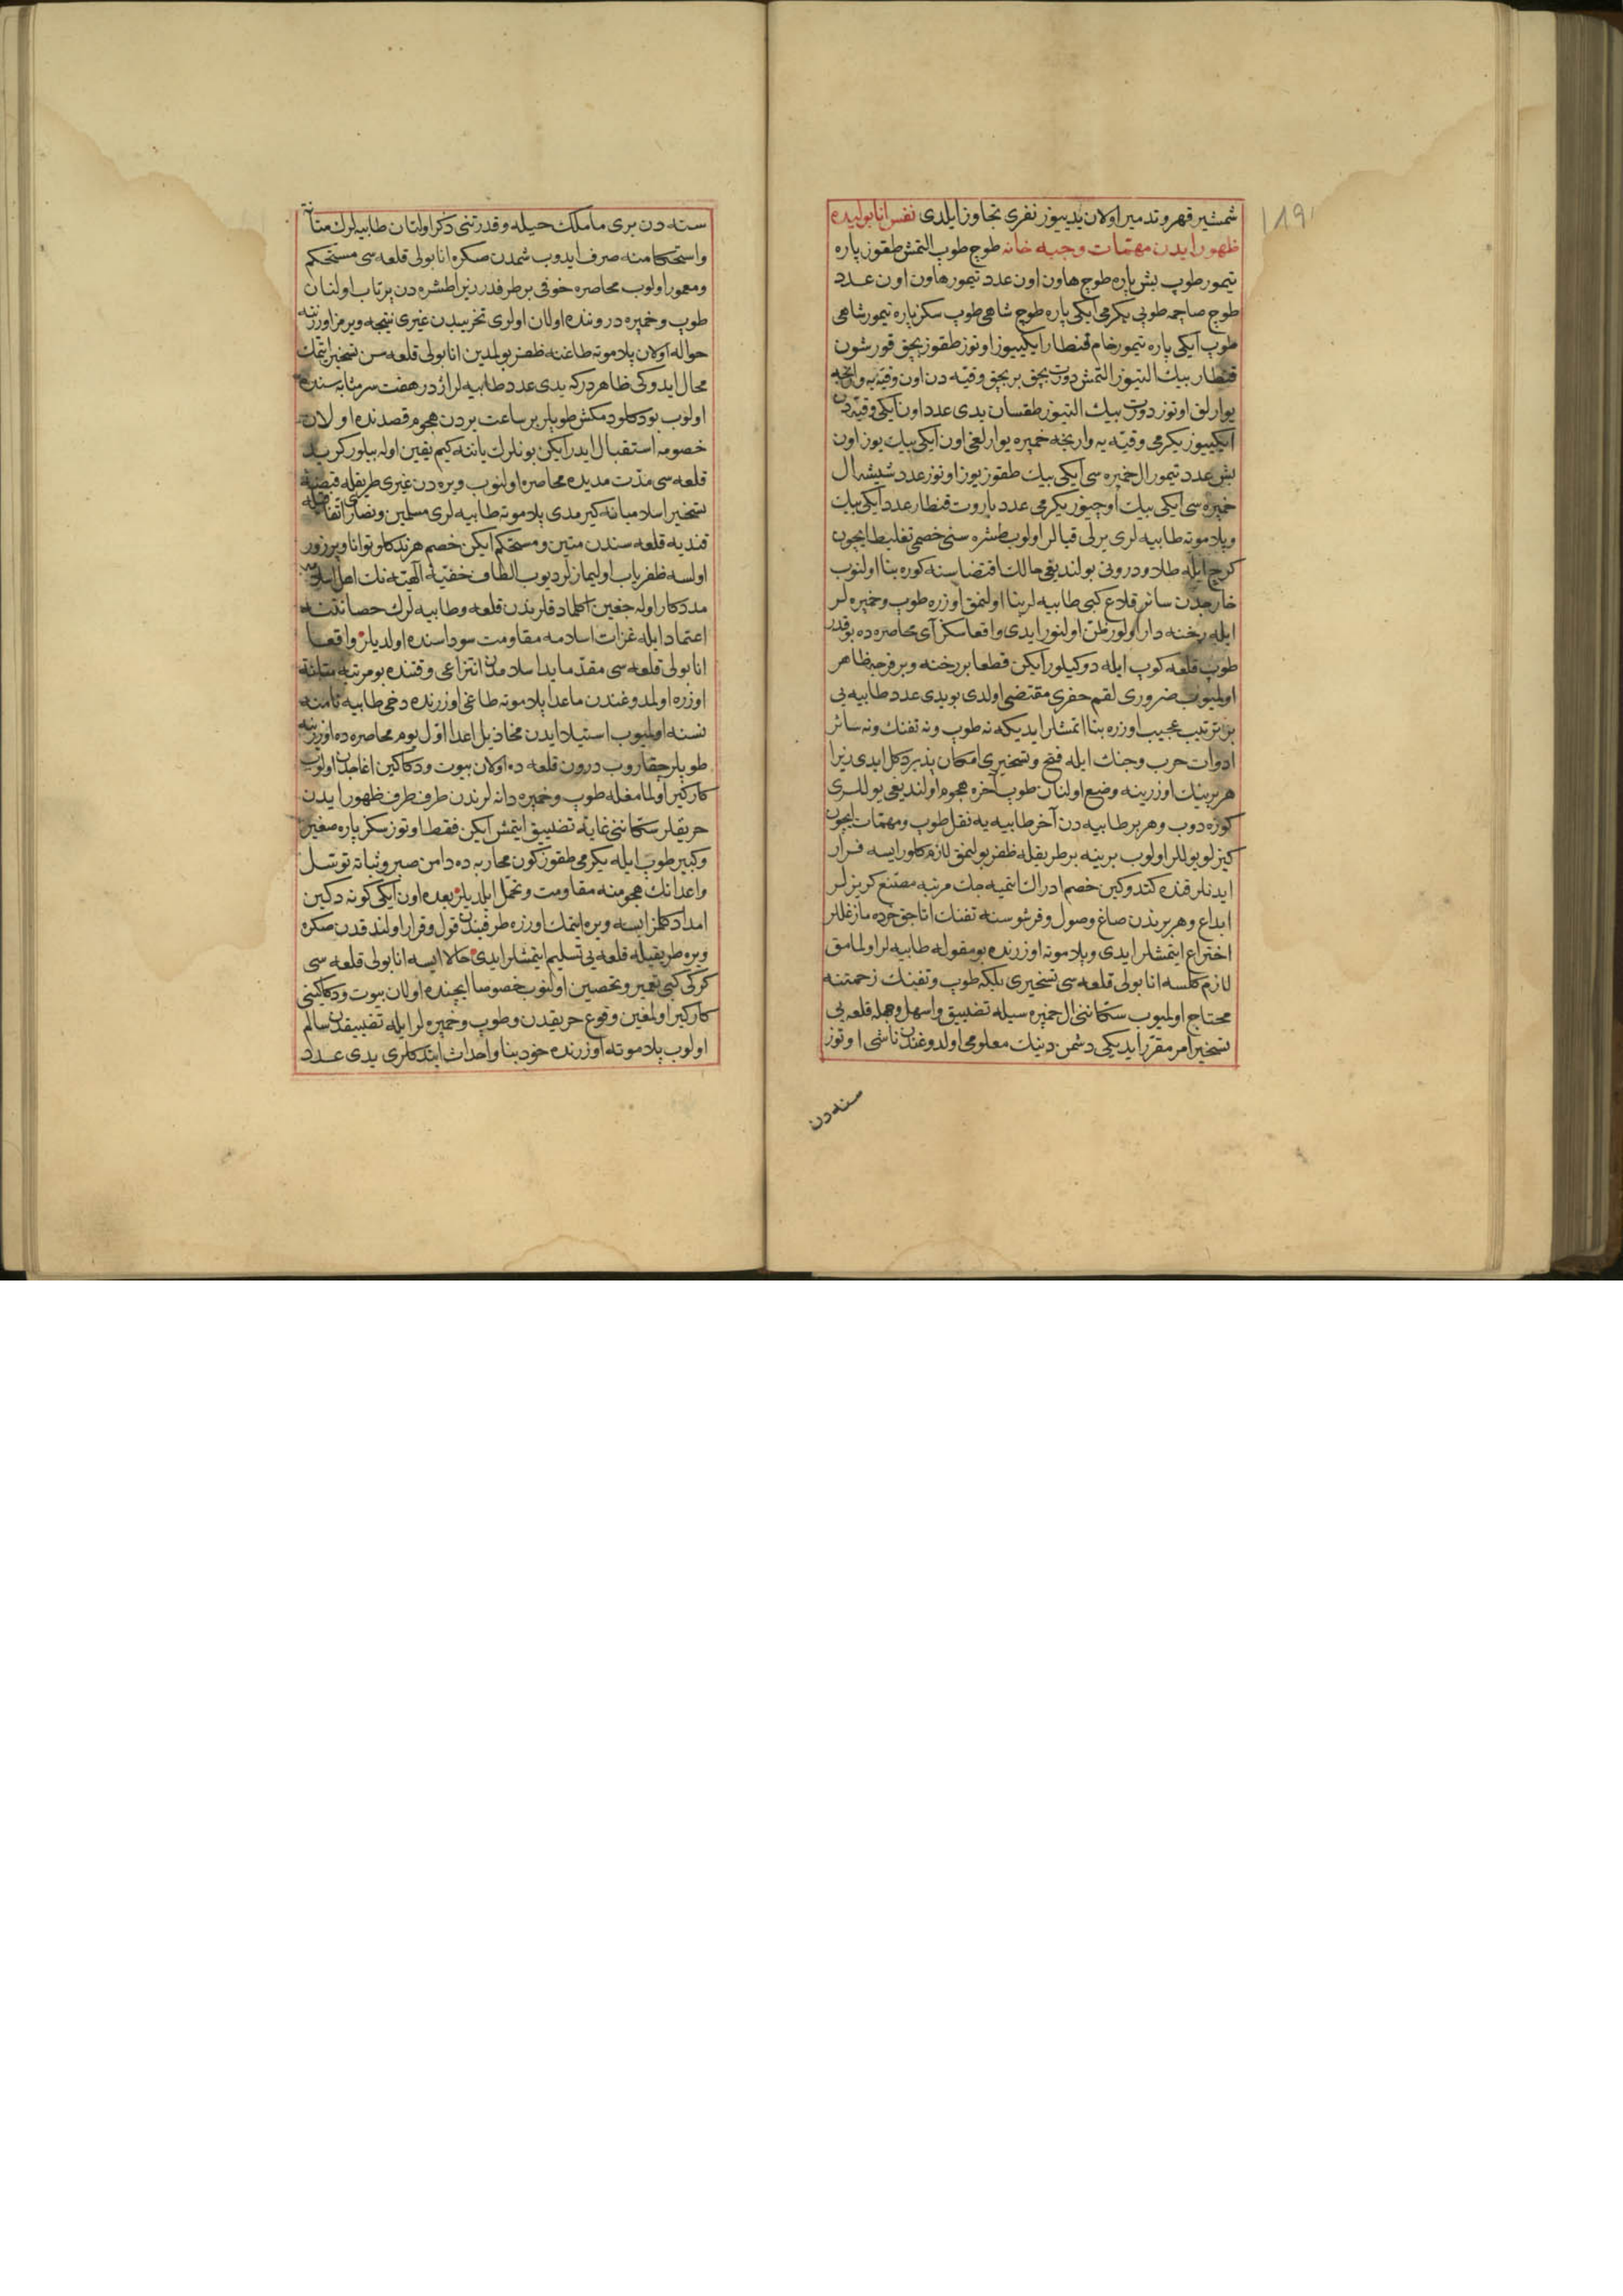 ١٨٩
شمشیر قهر و تدمیر اولان یدییوز نفری تجاوز ایلدی نفس انابولیده
ظهور ایدن مهمّات وجبه خانه طوج طوپ التمش طقوز پاره
تیمور طوپ بش پاره طوج هاون اون عدد تیمور هاون اون عدد
طوج صاچمه طوپی یکرمی ایکی پاره طوج شاهی طوپ سکز پاره تیمور شاهی
طوپ ایکی پاره تیمور خام قنطار ایکییوز اوتوز طقوز بچق قورشون
قنطار بیك التیوز التمش دورت بچق بر بچق وقیّه دن اون وقیّه یه وارنجه
یوارلق اوتوز دورت بیك التیوز طقسان یدی عدد اون ایکی وقیّه دن
ایکییوز یکرمی وقیّه یه وارنجه خمپره یوارلغی اون ایکی بیك یوز اون
بش عدد تیمور ال خمپره سی ایکی بیك طقوز یوز اوتوز عدد شیشه ال
خمپره سی ایکی بیك اوچیوز یکرمی عدد باروت قنطار عدد ایکی بیك
وپلاموته طابیه لری یرلی قیالر اولوب طشره سنی خصمی تغلیط ایچون
کرج ایله طلاو درونی بولندیغی حالت اقتضاسنه کوره بنا اولنوب
خارجدن سائر قلاع کبی طابیه لر بنا اولنمق اوزره طوپ وخمپره لر
ایله رخنه دار اولور ظن اولنور ایدی واقعا سکز آی محاصره ده بوقدر
طوپ قلعه کوپ ایله دوکیلور ایکن قطعا بر رخنه و بر فرجه ظاهر
اولمیوب ضروری لقم حفری مقتضی اولدی بو یدی عدد طابیه یی
بر ترتیب عجیب اوزره بنا اتمشلر ایدیکه نه طوپ و نه تفنك و نه سائر
ادوات حرب وجنك ایله فتح و تسخیری امکان پذیر دکل ایدی زیرا
هر برینك اوزرینه وضع اولنان طوپ آخره هجوم اولندیغی یوللری
کوزه دوب وهر بر طابیه دن آخر طابیه یه نقل طوپ ومهمّات ایچون
کیزلو یوللر اولوب برینه بر طریقله ظفر بولنمق لازم کلور ایسه فرار
ایدنلر قنده کتدوکین خصم ادراك ایتمیه جك مرتبه مصنع کریزلر
ابداع وهر برندن صاغ وصول وقرشوسنه تفنك اتاجق خرده مازغاللر
اختراع ایتمشلر ایدی وپلاموته اوزرنده بو مقوله طابیه لر اولمامق
لازم کلسه انابولی قلعه سی تسخیری بلکه طوپ وتفنك زحمتنه
محتاج اولمیوب سکاننی ال خمپره سیله تضییق واسهل وجهله قلعه یی
تسخیر امر مقرر ایدیکی دشمن دینك معلومی اولدوغندن ناشی اوتوز
سنه دن
سنه دن بری ماملك حیله و قدرتنی ذکر اولنان طابیه لرك متانت
واستحکامنه صرف ایدوب شمدن صکره انابولی قلعه سی مستحکم
ومعمور اولوب محاصره خوفی بر طرفدر زیرا طشره دن پرتاب اولنان
طوپ و خمپره دروننده اولان اولری تخریبدن غیری نتیجه ویرمز اوزرینه
حواله اولان پلاموته طاغنه ظفر بولمدین انابولی قلعه سن تسخیر ایتمك
محال ایدوکی ظاهر درکه یدی عدد طابیه لر اژدر هفت سر مثابه سنده
اولوب بودکلو دمکش طوپلر بر ساعت بردن هجوم قصدنده اولان
خصومه استقبال ایدر ایکن بونلرك یاننه کیم یقین اوله بیلور کرید
قلعه سی مدّت مدیده محاصره اولنوب ویره دن غیری طریقله قبضهٔ
تسخیر اسلامیانه کیرمدی پلاموته طابیه لری مسلمین ونصاری اتفاقیله
قندیه قلعه سندن متین ومستحکم ایکن خصم هر نه دکلو توانا وپرزور
اولسه ظفریاب اولیمازلر دیوب الطاف خفیّهٔ الٰهیّه نك اهل اسلامه
مددکار اوله جغین اکلمادقلرندن قلعه وطابیه لرك حصانتنه
اعتماد ایله غزات اسلامه مقاومت سوداسنده اولدیلر واقعا
انابولی قلعه سی مقدّما ید اسلامدن انتزاعی وقتنده بو مرتبه متانت
اوزره اولمدوغندن ماعدا پلاموته طاغی اوزرنده دخی طابیه نامنه
نسنه اولمیوب استیلا ایدن مخاذیل اعدا اوّل یوم محاصره ده اوزرینه
طوپلر چقاروب درون قلعه ده اولان بیوت ودکاکین اغاجدن اولوب
کارکیر اولمامغله طوپ وخمپره دانه لرندن طرف طرف ظهور ایدن
حریقلر سکاننی غایه تضییق ایتمش ایکن فقط اوتوز سکز پاره صغیر
وکبیر طوپ ایله یکرمی طقوز کون محاربه ده دامن صبر وثباته توسّل
واعدانك هجومنه مقاومت وتحمّل ایلدیلر بعده اون ایکی کونه دکین
امداد کلمز ایسه ویره ایتمك اوزره طرفیندن قول وقرار اولندقدن صکره
ویره طریقیله قلعه یی تسلیم ایتمشلر ایدی حالا ایسه انابولی قلعه سی
کرکی کبی تعمیر وتحصین اولنوب خصوصا ایچنده اولان بیوت ودکاکینی
کارکیر اولمغین وقوع حریقدن وطوپ وخمپره لر ایله تضییقدن سالم
اولوب پلاموته اوزرنده خود بنا واحداث ایتدکلری یدی عدد